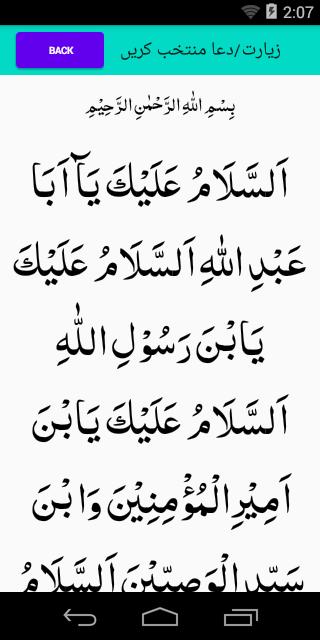 2:07
BACK زیارت/دعا منتخب کریں
بِسْمِ اللهِ الرَّحْمٰنِ الرَّحِيْمِ
اَلسَّلَامُ عَلَيْكَ يَآ اَبَا
عَبْدِ اللهِ اَلسَّلَامُ عَلَيْكَ
يَابْنَ رَسُوْلِ اللّٰهِ
اَلسَّلَامُ عَلَيْكَ يَابْنَ
اَمِيْرِ الْمُؤْمِنِيْنَ وَابْنَ
سَيِّدِ الْوَصِيِّيْنَ اَلسَّلَامُ